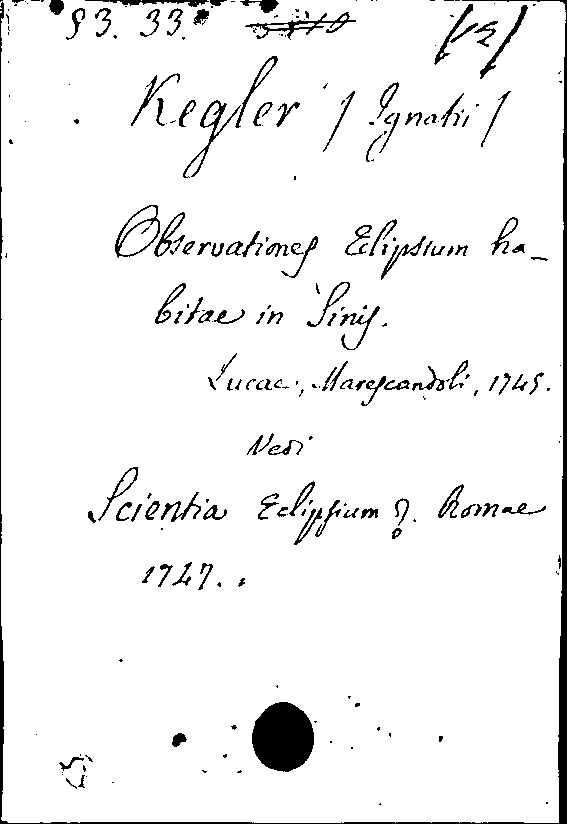 93. 33.
Kegler / Ignatii /
Observationes Eclipsium ha-
bitae in Sinis.
Lucae, Marescandoli, 1745.
Vedi
Scientia Eclipsium Romae
1747.